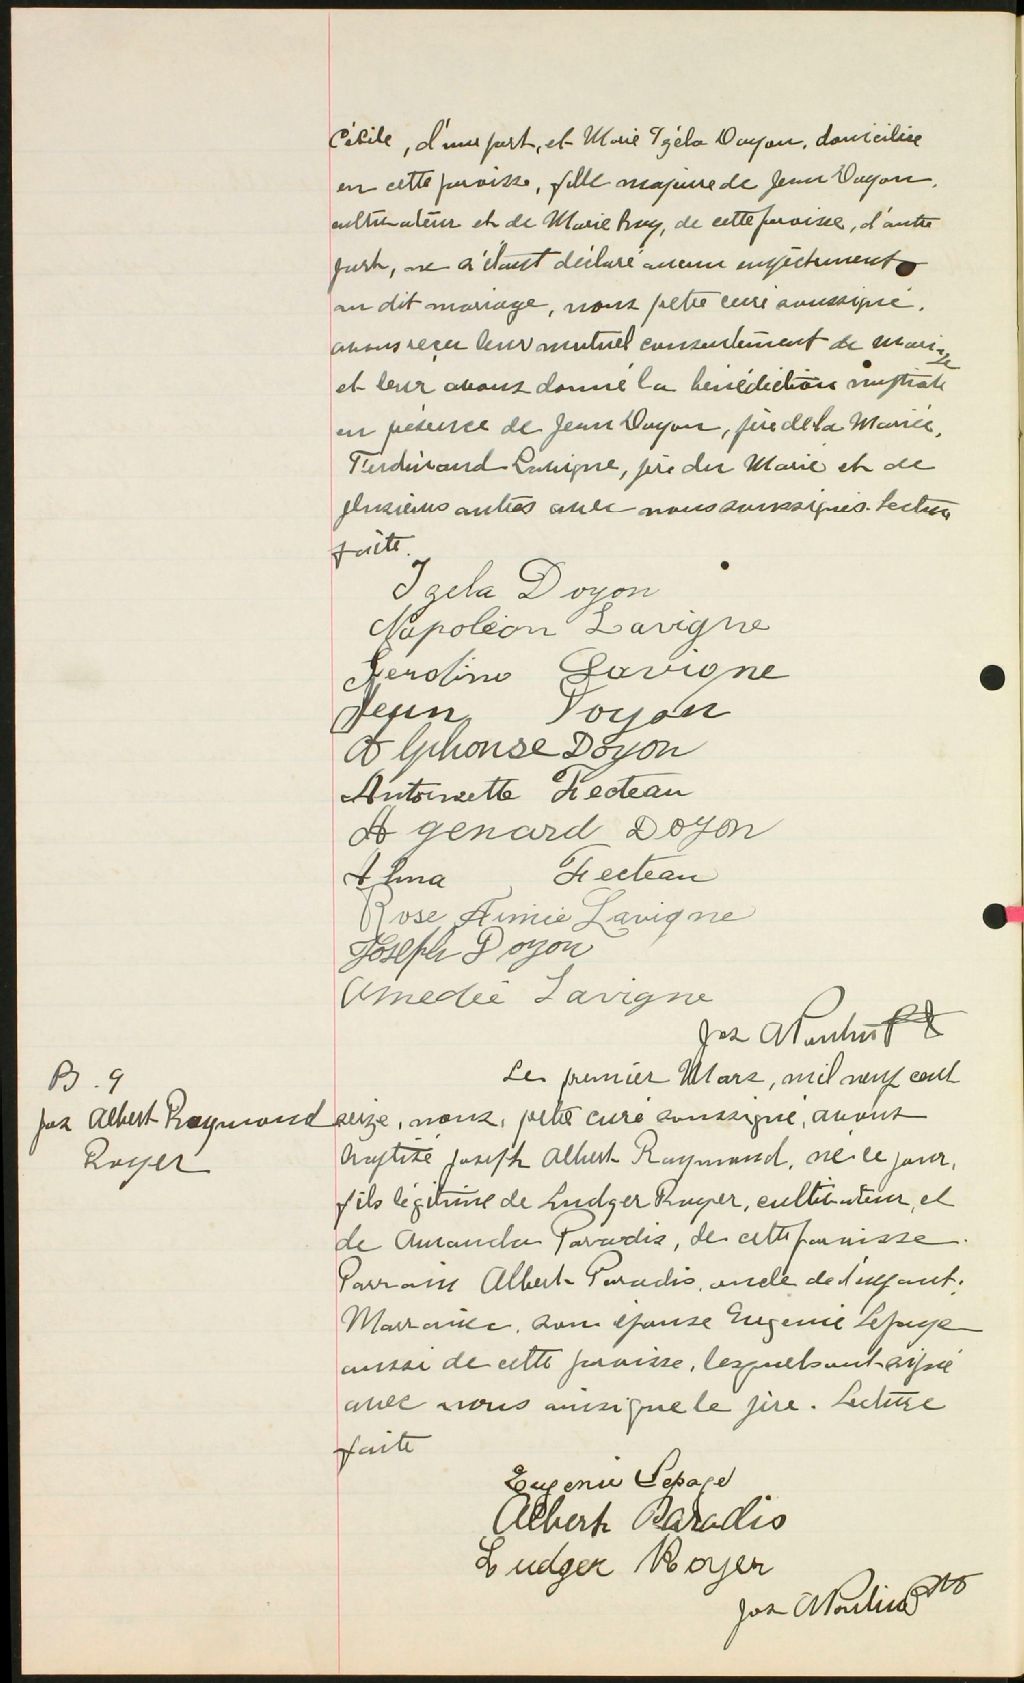 Cécile, d'une part, et Marie Izéla Doyon, domiciliée
en cette paroisse, fille majeure de Jean Doyon,
cultivateur et de Marie Roy, de cette paroisse, d'autre
part, ne s'étant déclaré aucun empêchement
au dit mariage, nous ptre curé soussigné,
avons reçu leur mutuel consentement de mariage
et leur avons donné la bénédiction nuptiale
en présence de Jean Doyon, père de la Mariée,
Ferdinand Lavigne, père du Marié et de
plusieurs autres avec nous soussignés. Lecture
faite.
Izela Doyon
Napoléon Lavigne
Lavigne
Jean Doyon
Alphonse Doyon
Antoinette Fecteau
Agenard Doyon
Alma Fecteau
Rose Aimée Lavigne
Joseph Doyon
Amedée Lavigne
Jos A Poulin Ptr
B. 9
Jos Albert Raymond
Royer
Le premier Mars, mil neuf cent
seize, nous, ptre curé soussigné, avons
baptisé Joseph Albert Raymond, né ce jour,
fils légitime de Ludger Royer, cultivateur, et
de Amanda Paradis, de cette paroisse.
Parrain Albert Paradis, oncle de l'enfant;
Marraine, son épouse Eugenie Lepage
aussi de cette paroisse, lesquels ont signé
avec nous ainsi que le père. Lecture
faite
Eugenie Lepage
Albert Paradis
Ludger Royer
Jos A Poulin Ptr